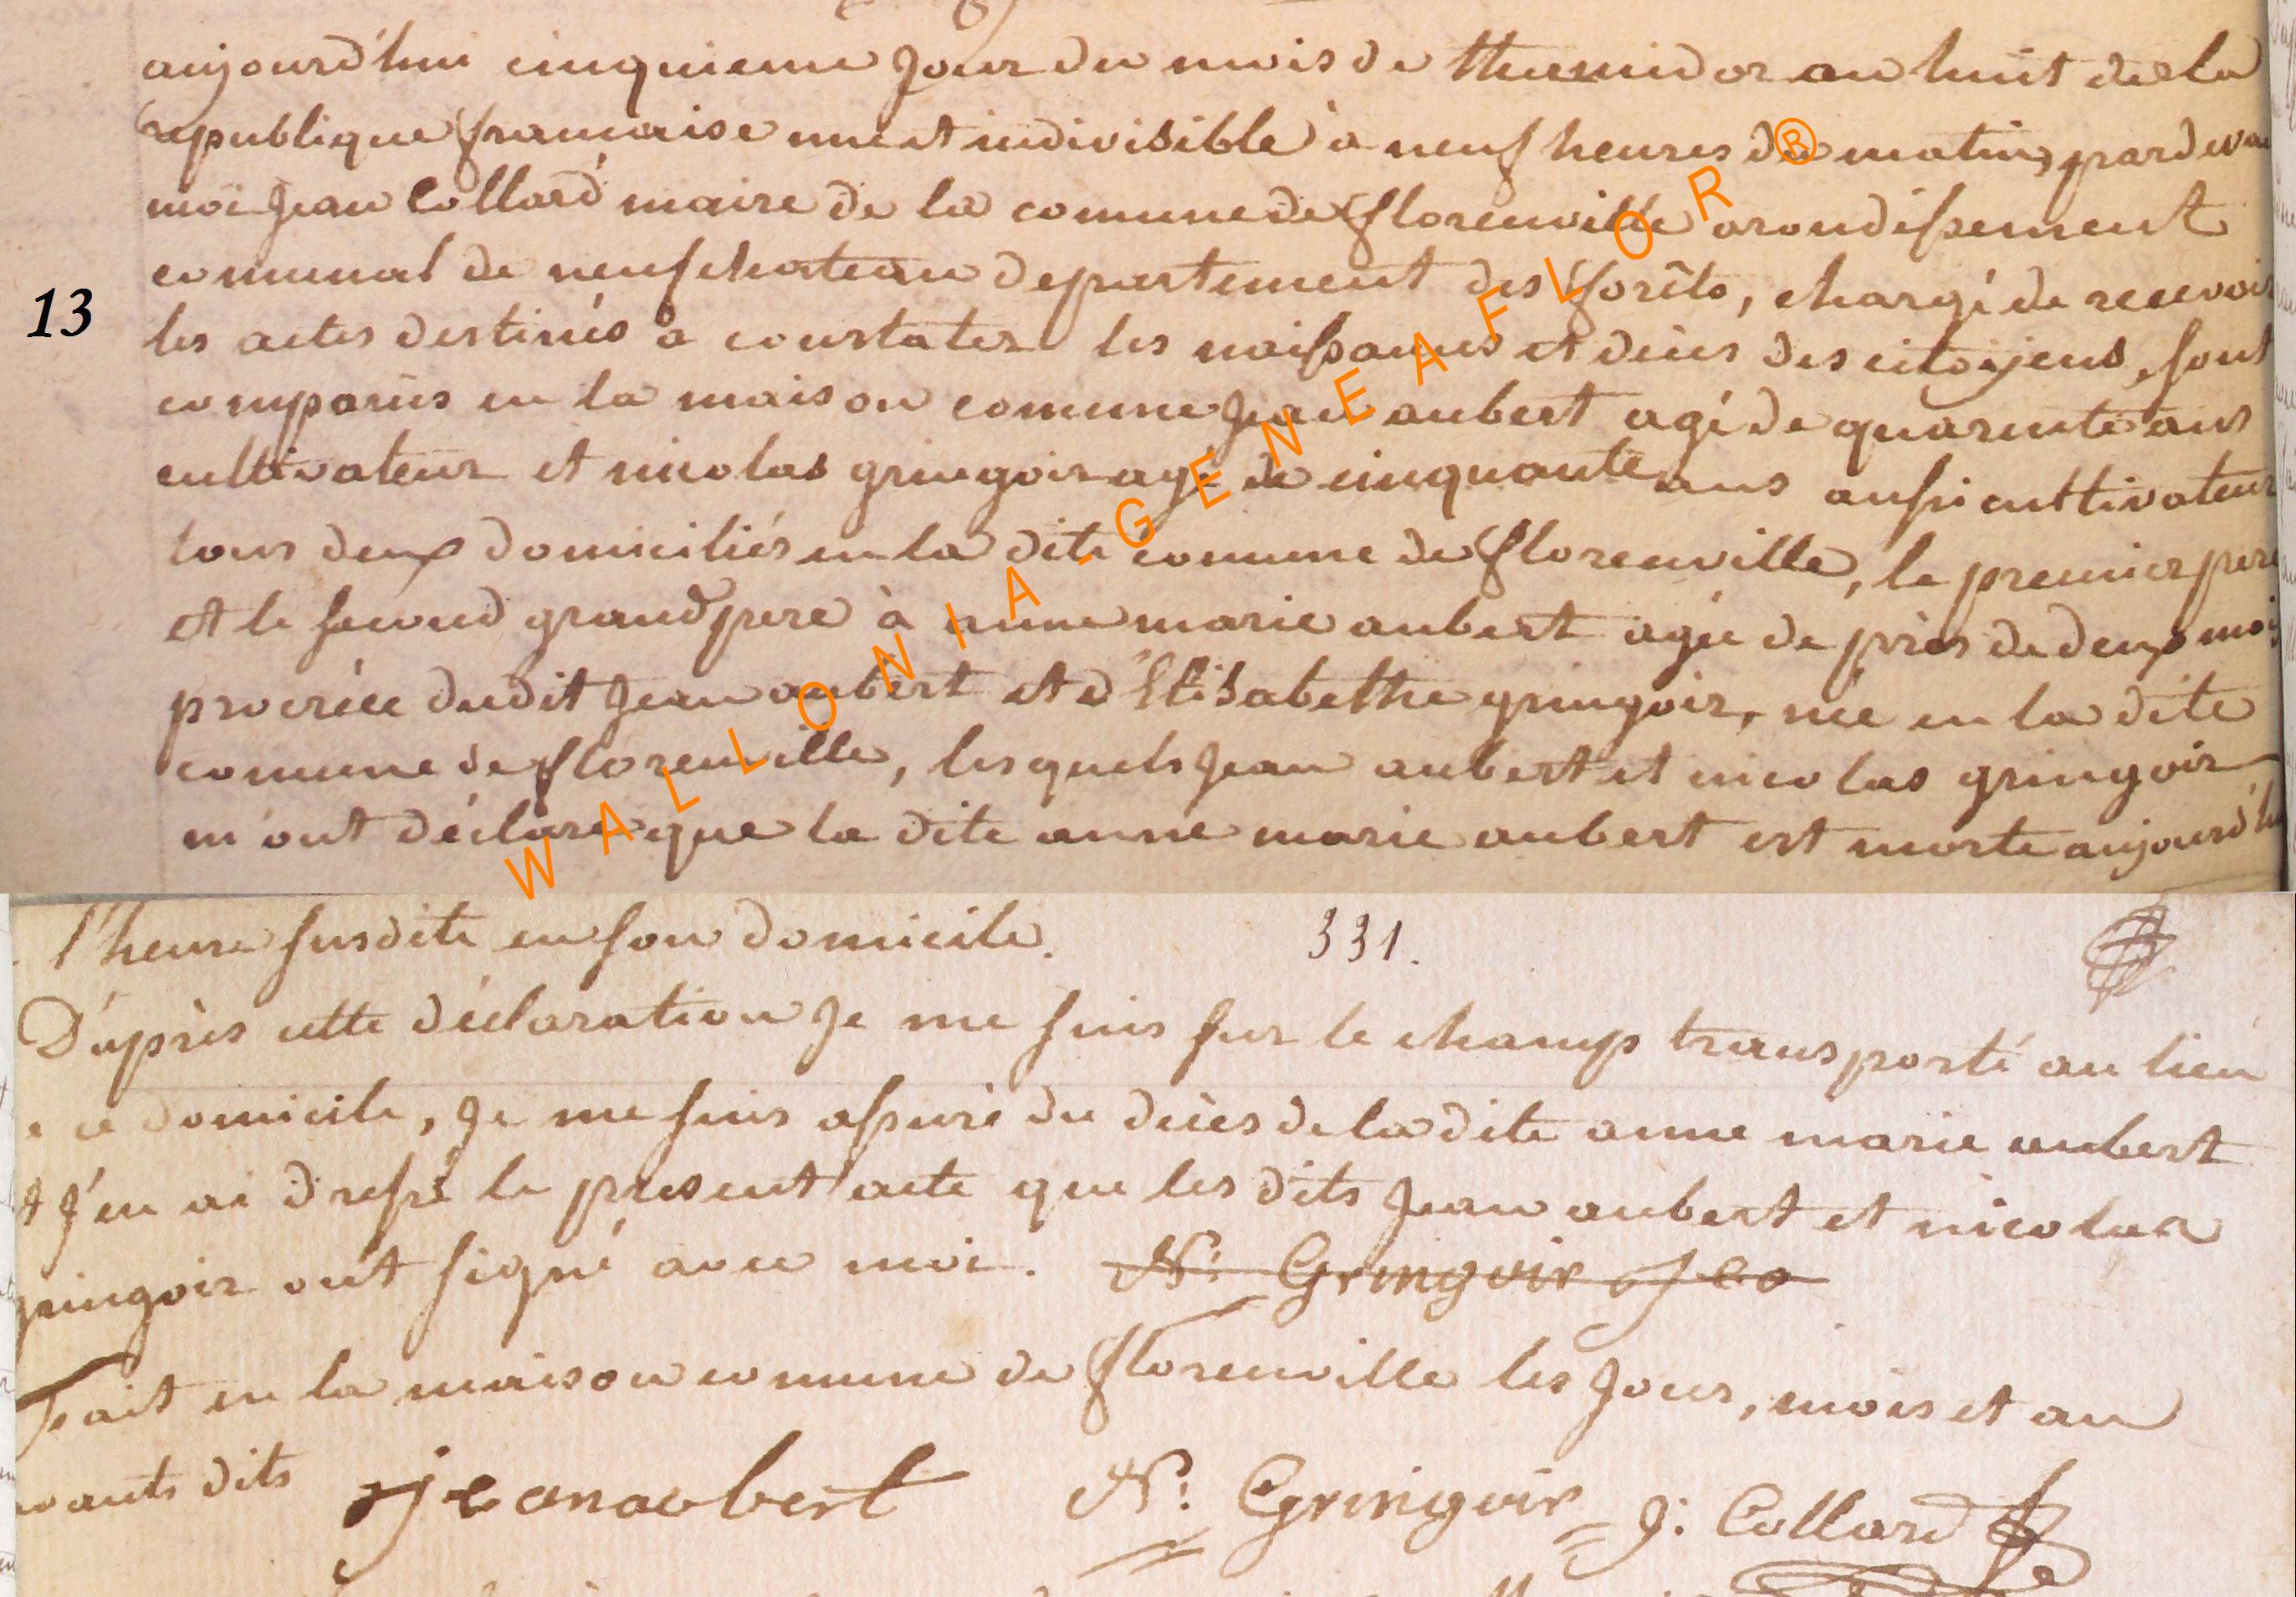 aujourd'hui cinquieme jour du mois de thermidor an huit de la
republique francaise une et indivisible à neuf heures du matin, pardeva
moi jean Collard maire de la comune de florenville arondissement
comunal de neufchateau departement des forêts, chargé de recevoir
13
les actes destinés a constater les naissances et décès des citoyens, sont
comparus en la maison comune jean aubert agé de quarente ans
cultivateur et nicolas gringoir agé de cinquante ans aussi cultivateur
tous deux domiciliés en la dite comune de florenville, le premier pere
et le second grand pere à anne marie aubert agée de près de deux mois
procréée dudit jean aubert et d'Elisabethe gringoir, née en la dite
comune de florenville, les quels jean aubert et nicolas gringoir
m'ont déclaré que la dite anne marie aubert est morte aujourd'hu
WALLONIA-GENEAFLOR®
l'heure susdite en son domicile. 331.
D'après cette déclaration je me suis sur le champs transporté au lieu
e ce domicile, je me suis assuré du décès de la dite anne marie aubert
t j'en ai dressé le present acte que les dits jean aubert et nicolas
gringoir ont signé avec moi. N: Gringoir
fait en la maison comune de florenville les jour, mois et an
vants dits jean aubert N: Gringoir J: Collard